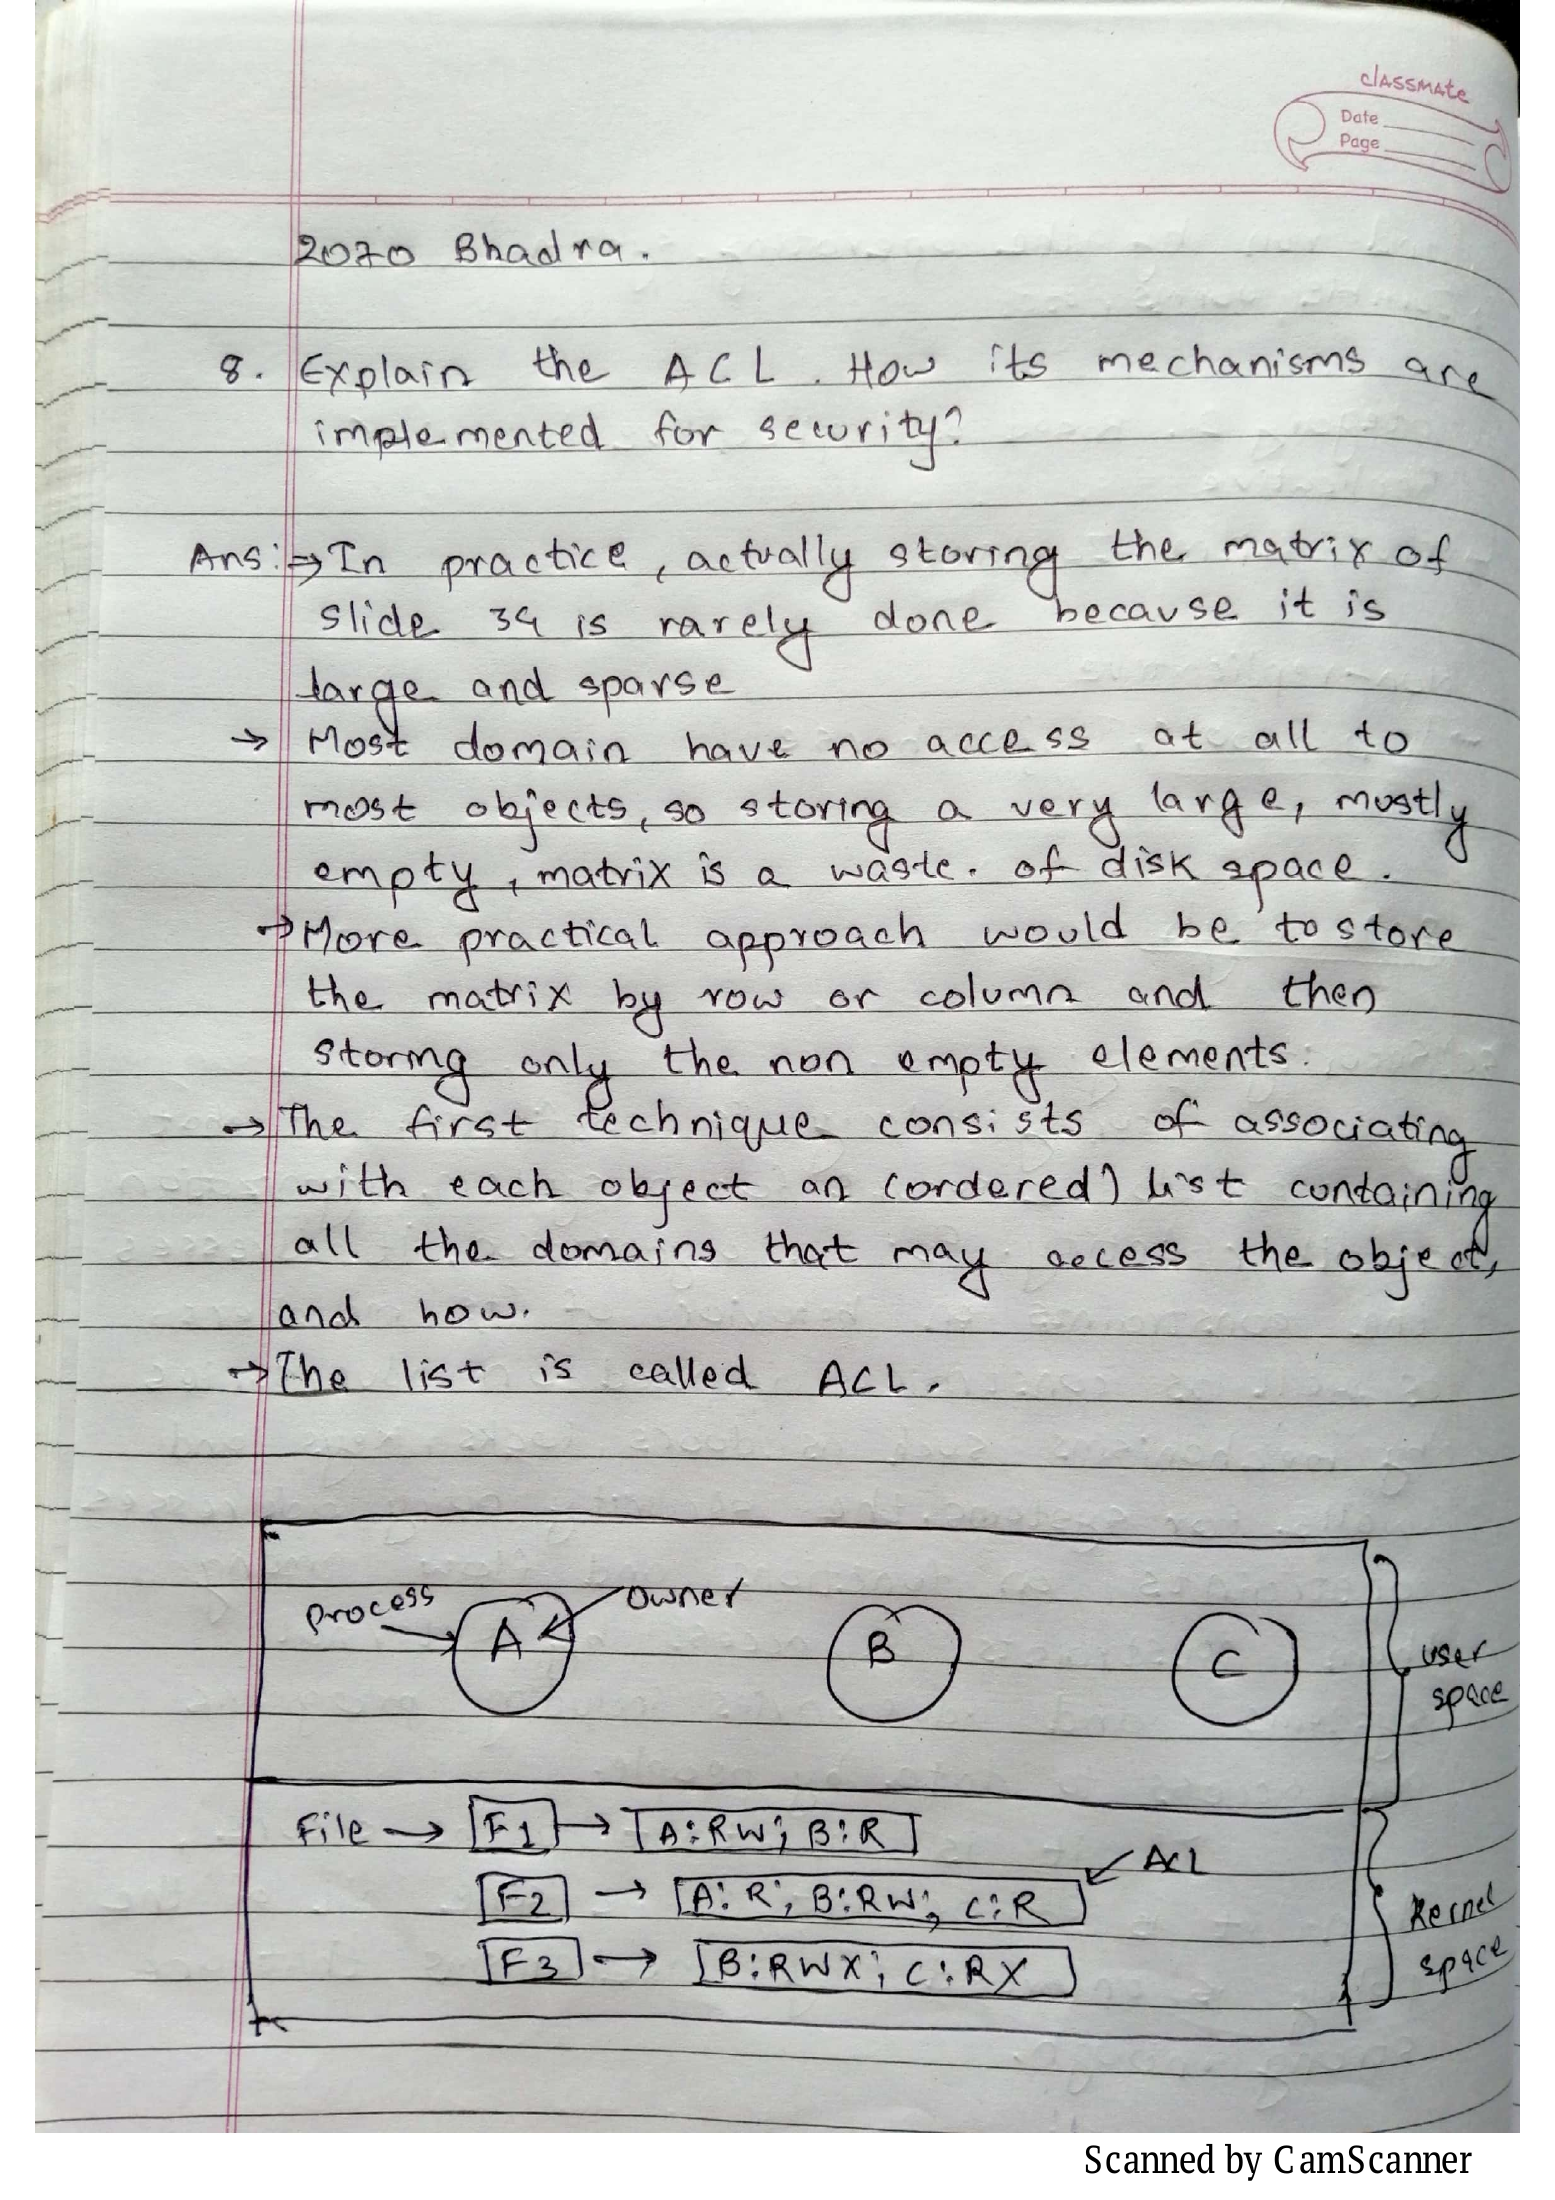 classmate
Date
Page
2070 Bhadra.
8. Explain the ACL. How its mechanisms are
implemented for security?
Ans:→ In practice, actually storing the matrix of
slide 34 is rarely done because it is
large and sparse
→ Most domain have no access at all to
most objects, so storing a very large, mostly
empty, matrix is a waste. of disk space.
→ More practical approach would be to store
the matrix by row or column and then
storing only the non empty elements.
→ The first technique consists of associating
with each object an (ordered) list containing
all the domains that may access the object,
and how.
→ The list is called ACL.
Process → A ← Owner
B
C
user
space
File → F1 → A:RW; B:R
ACL
F2 → A:R; B:RW; C:R
F3 → B:RWX; C:RX
Kernel
space
Scanned by CamScanner